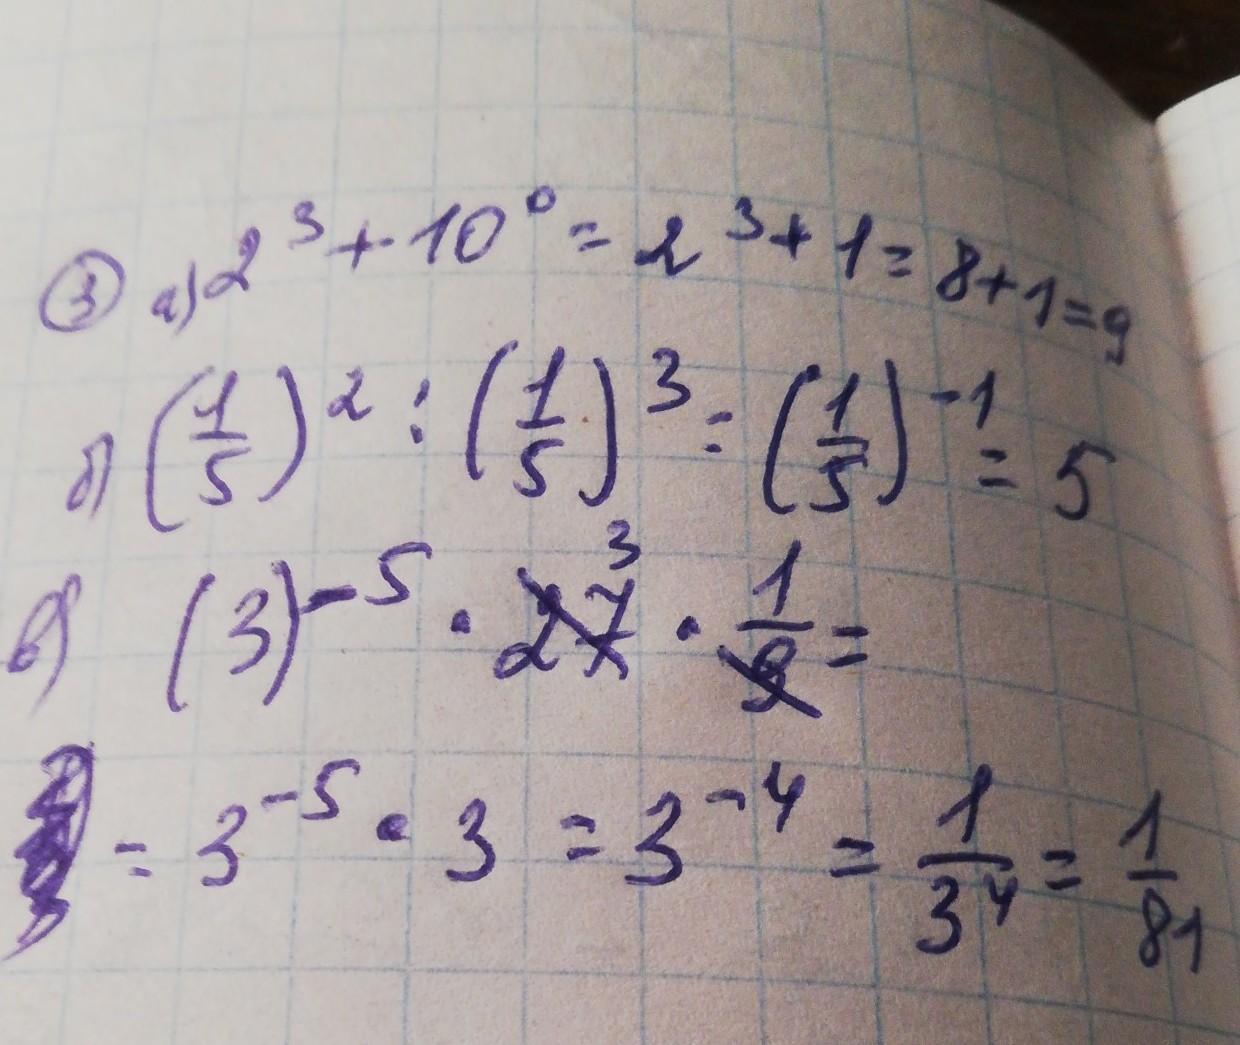 ③ а) 2³ + 10⁰ = 2³ + 1 = 8 + 1 = 9
б) (1/5)² : (1/5)³ = (1/5)⁻¹ = 5
в) (3)⁻⁵ · 27³ · 1/9 =
= 3⁻⁵ · 3 = 3⁻⁴ = 1/3⁴ = 1/81